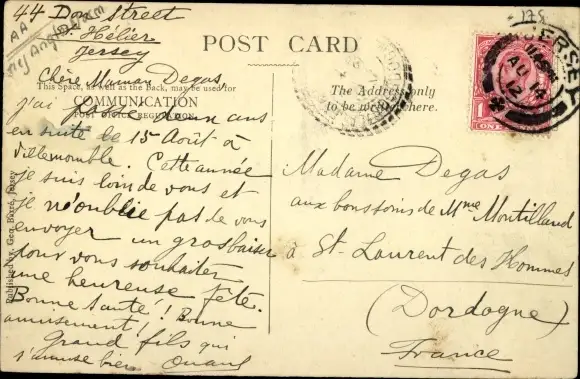 44 Don Street
St. Hélier
Jersey
AA
POST CARD
This Space, as well as the Back, may be used for
COMMUNICATION
POST OFFICE REGULATION.
The Address only
to be written here.
Chère Maman Degas,
j'ai passé deux ans
en suite le 15 Août à
Villemomble. Cette année
je suis loin de vous et
je n'oublie pas de vous
envoyer un gros baiser
pour vous souhaiter
une heureuse fête.
Bonne santé! Bonne
amusement!
Grand fils qui
s'amuse bien
Madame Degas
aux bons soins de Mme Montilland
à St. Laurent des Hommes
(Dordogne)
France
JERSEY
AU 14
12
1
ONE
Published by Geo. Barré, Jersey